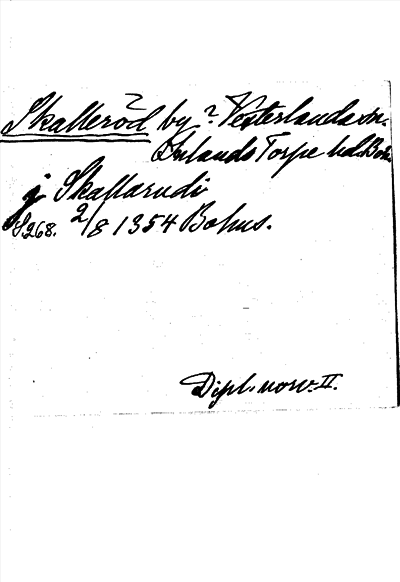 Skalleröd by ? Vesterlanda sn.
Inlands Torpe hd. Boh.
j Skallarudi
S 268. 2/8 1354 Bohus.
Dipl. norv. II.